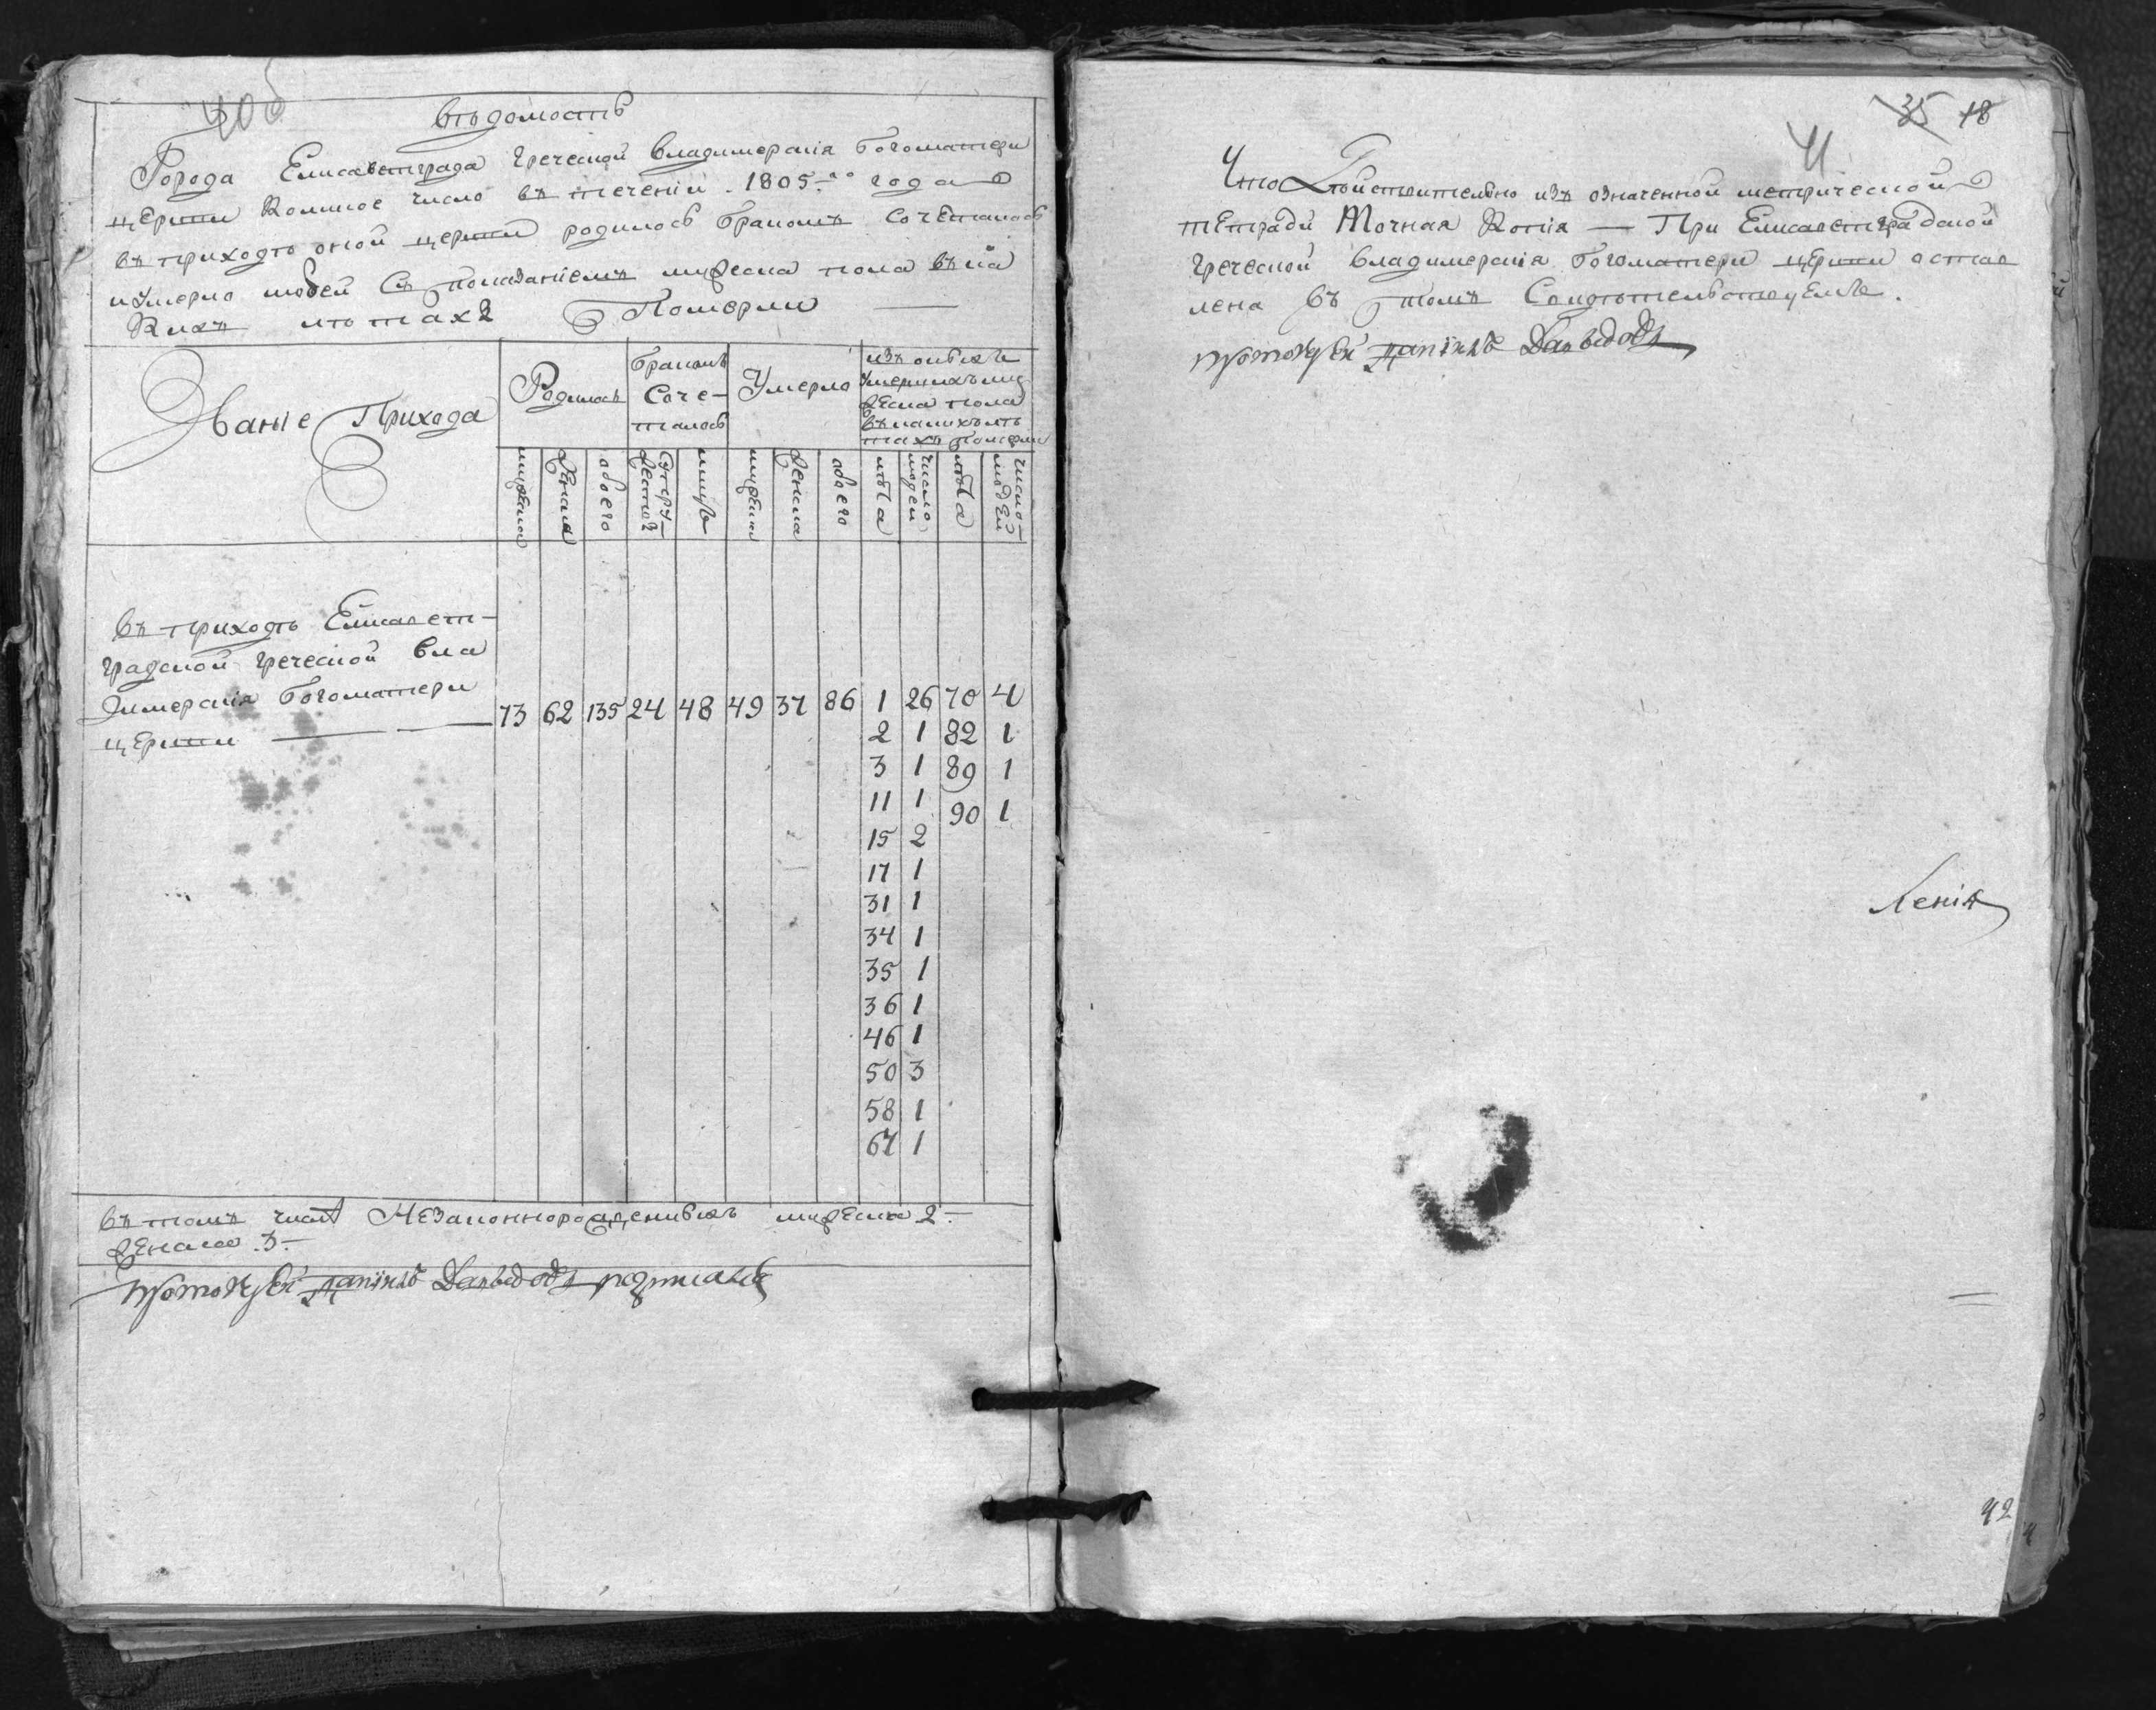 40 об
Вѣдомость
Города Елисаветграда Греческой Владимерскія Богоматери
церкви Коликое число въ теченіи 1805-го года
въ приходѣ оной церкви родилось бракомъ сочеталось
и умерло людей Съ показаніемъ мужеска пола въ ка
Кихъ лѣтахъ Померли
Званіе Прихода
Родилось
бракомъ Соче-талось
Умерло
изъ оныхъ Умершихъ муж
жеска пола
въ какихъ лѣ
тахъ померли
мужеска
женска
обоего
Супру-жествъ
лицъ
мужеска
женска
обоего
лѣта
число людей
лѣта
число людей
въ приходѣ Елисавет-
градской Греческой Вла
димерскія Богоматери
церкви
73 62 135 24 48 49 37 86 1 26 70 4
2 1 82 1
3 1 89 1
11 1 90 1
15 2
17 1
31 1
34 1
35 1
36 1
46 1
50 3
58 1
67 1
въ томъ числѣ Незаконнорожденныхъ мужеска 2-
женска 3-
протоіерей Даніилъ Давыдовъ подписалъ
35 18
41
Что Действительно изъ означенной метрической
тетради Точная Копія — При Елисаветградской
Греческой Владимерскія Богоматери церкви остав
лена Въ томъ Свидѣтельствуемъ.
протоіерей Даніилъ Давыдовъ
42